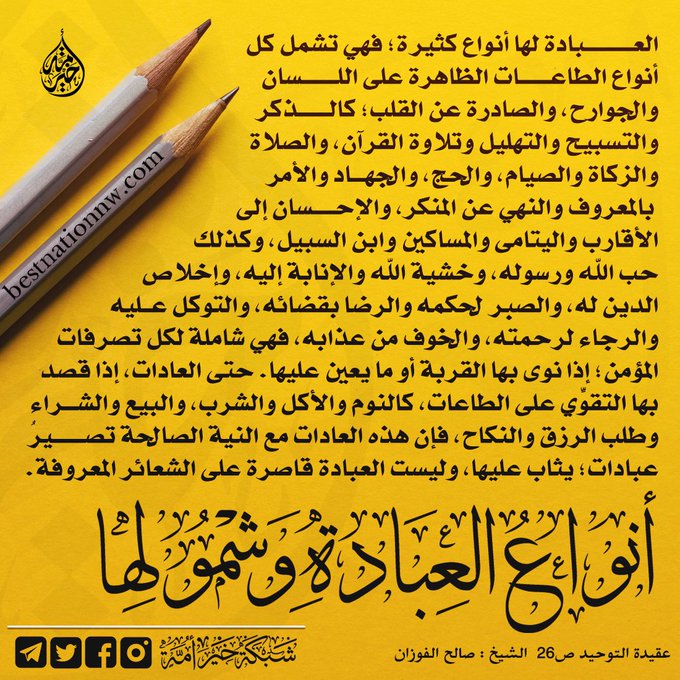 العبادة لها أنواع كثيرة؛ فهي تشمل كل
أنواع الطاعات الظاهرة على اللسان
والجوارح، والصادرة عن القلب؛ كالذكر
والتسبيح والتهليل وتلاوة القرآن، والصلاة
والزكاة والصيام، والحج، والجهاد والأمر
بالمعروف والنهي عن المنكر، والإحسان إلى
الأقارب واليتامى والمساكين وابن السبيل، وكذلك
حب الله ورسوله، وخشية الله والإنابة إليه، وإخلاص
الدين له، والصبر لحكمه والرضا بقضائه، والتوكل عليه
والرجاء لرحمته، والخوف من عذابه، فهي شاملة لكل تصرفات
المؤمن؛ إذا نوى بها القربة أو ما يعين عليها. حتى العادات، إذا قصد
بها التقوِّي على الطاعات، كالنوم والأكل والشرب، والبيع والشراء
وطلب الرزق والنكاح، فإن هذه العادات مع النية الصالحة تصيرُ
عبادات؛ يثاب عليها، وليست العبادة قاصرة على الشعائر المعروفة.
أنواعُ العِبَادَةِ وَشُمُولُها
عقيدة التوحيد ص26 الشيخ : صالح الفوزان
شبكة خير أمة
bestnationnw.com
خير أمة